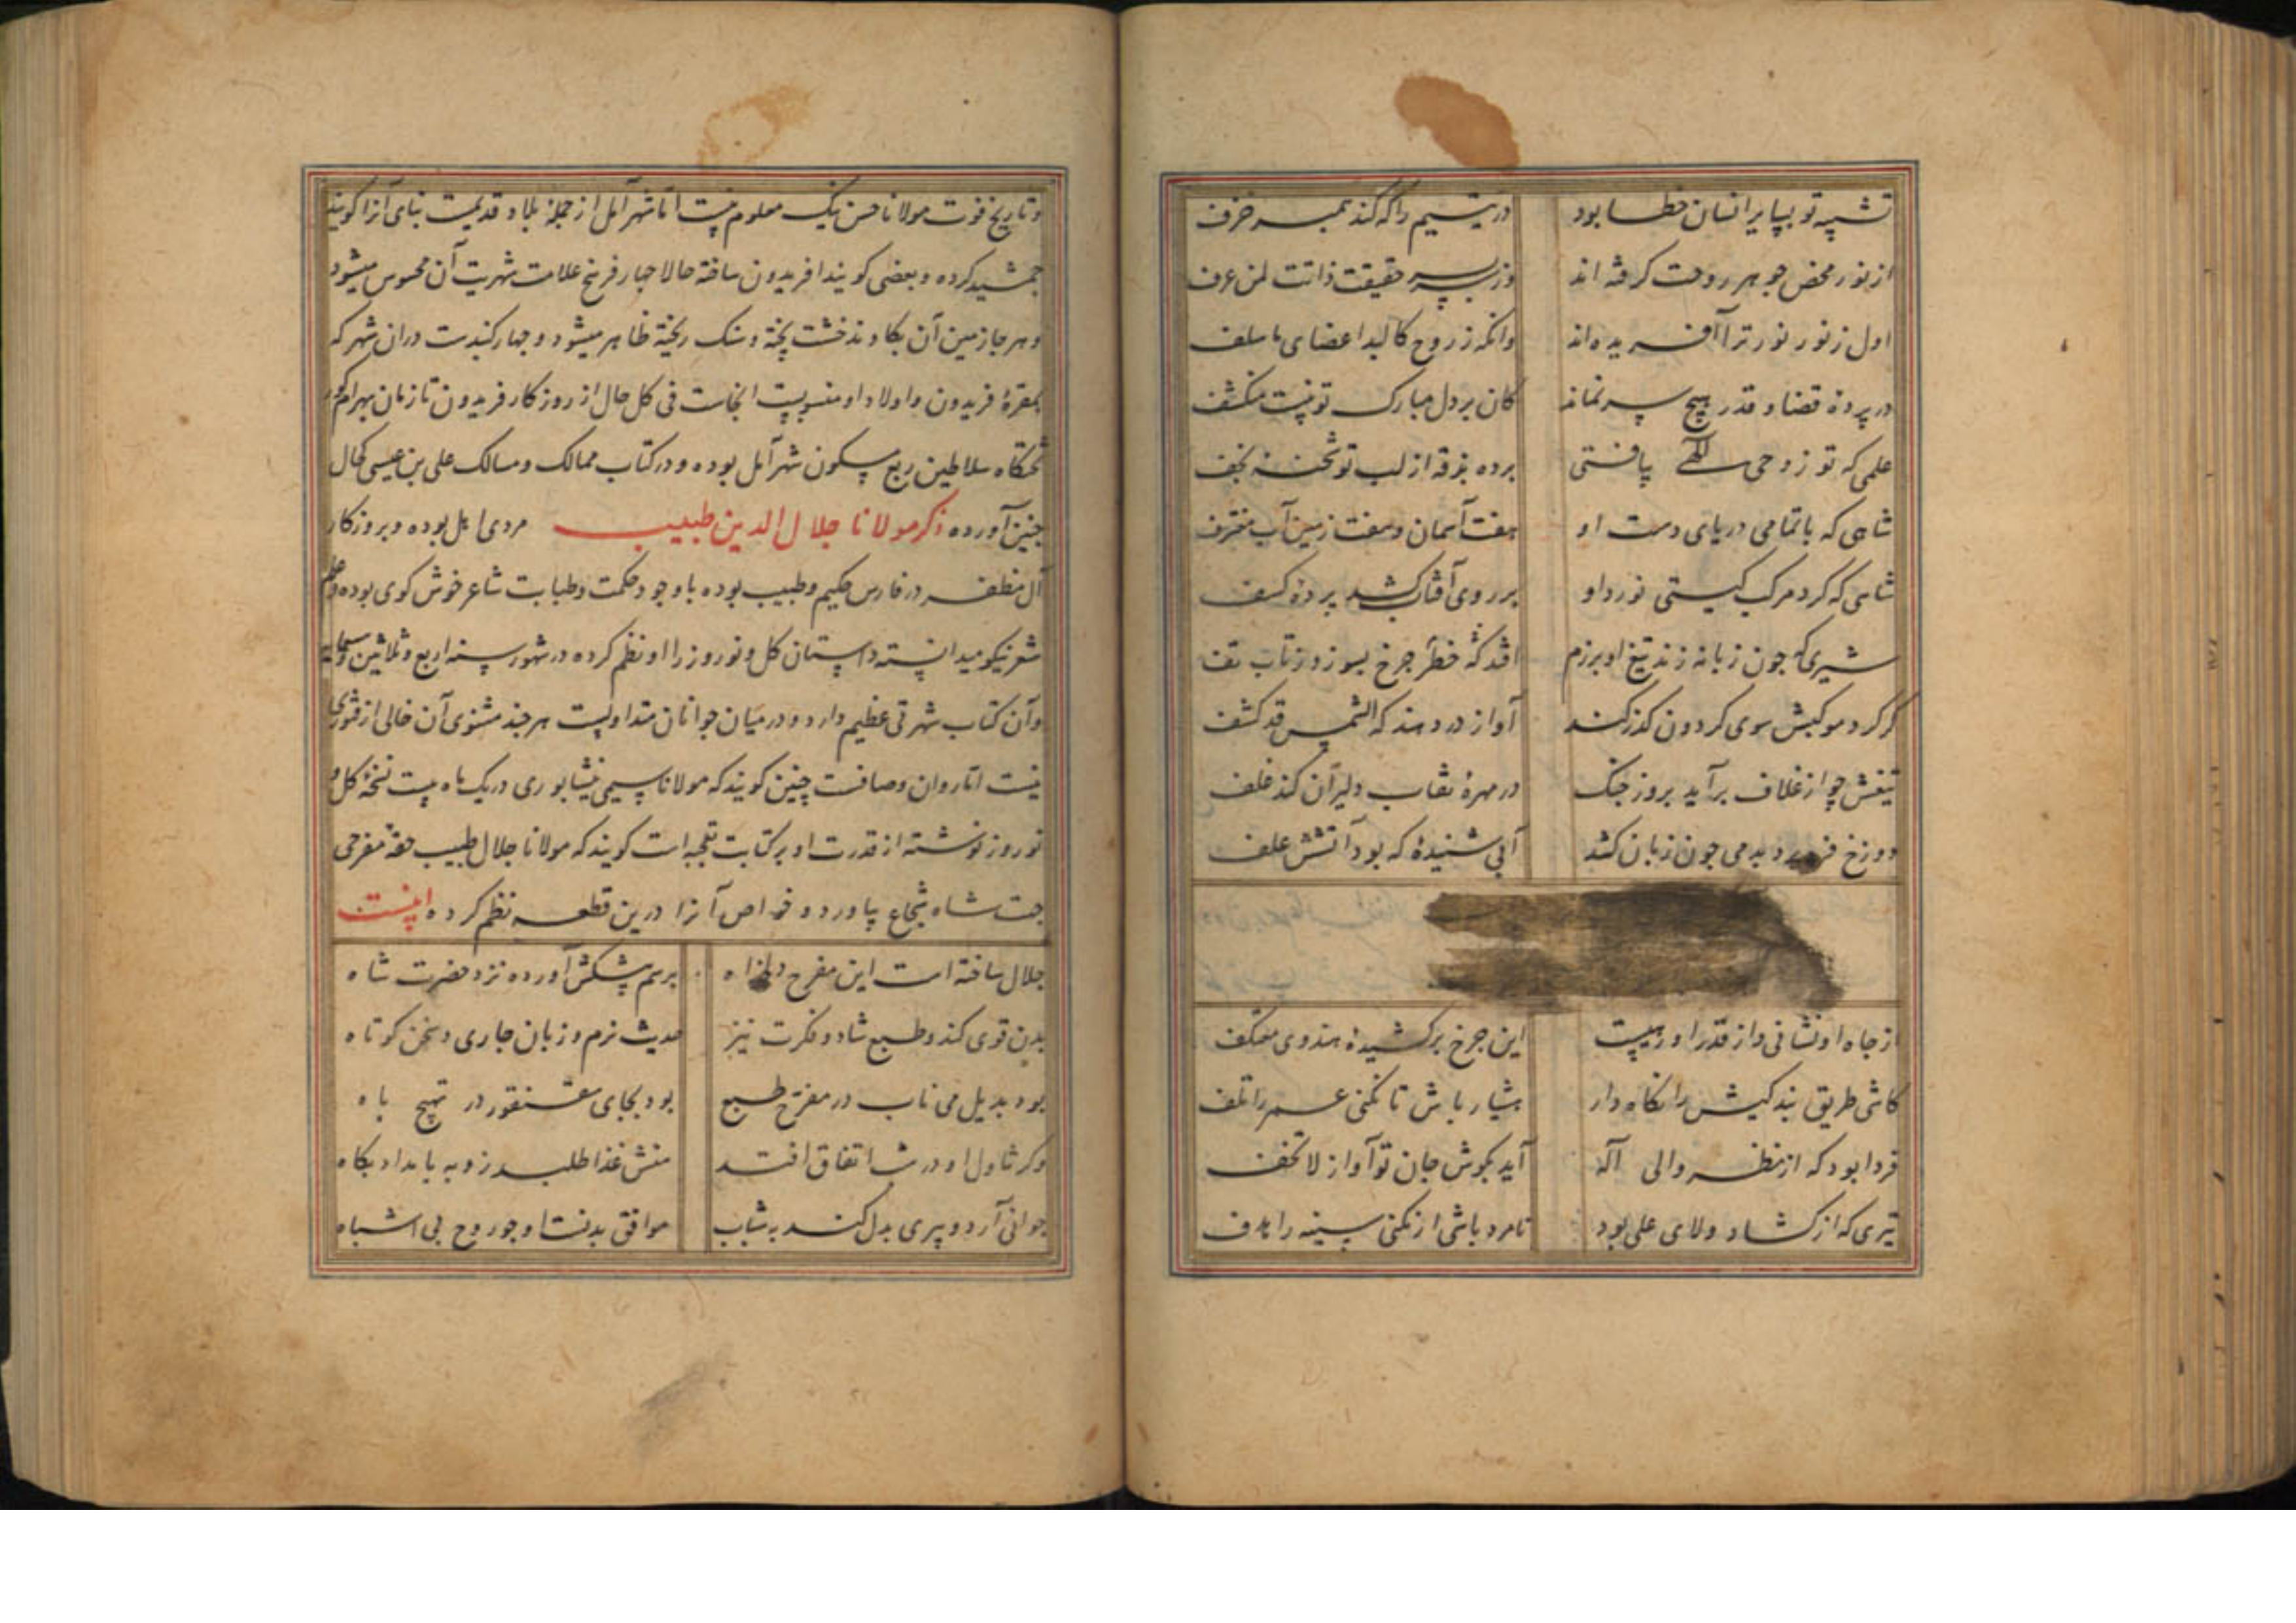 تشبیه تو بسایر انسان خطا بود در یتیم را که کند همسر خزف
از نور محض جوهر روحت گرفته اند وز سر حقیقت ذاتت لمن عرف
اول ز نور نور ترا آفریده اند وانکه ز روح کالبد اعضای ما سلف
در پرده قضا و قدر هیچ سر نماند کان بر دل مبارک تو نیست منکشف
علمی که تو ز وحی الهی یافتی برده بغرفه از لب تو شحنه نجف
شاهی که با تمامی دریای دست او هفت آسمان و هفت زمین آب مغترف
شاهی که کرد مرکب کیستی نورد او بر روی آفتاب کشد پرده کسف
شیری که جون زبانه زند تیغ او برزم افتد که خطر جرخ بسوزد ز تاب تف
کر کرد موکبش سوی کردون کذر کند آواز در دهند که الشمس قد کشف
تیغش چو از غلاف برآید بروز جنک در مهره نقاب دلیران کند غلف
دوزخ فرو برد بدمی جون زبان کشد آبی شنیده که بود آتشش علف
از جاه او نشانی و از قدر او رهیست این جرخ برکشیده هندوی معتکف
کاشی طریق بندکیش را نکاه دار هشیار باش تا نکنی عمر را تلف
فردا بود که از نظر والی آله آید بکوش جان تو آواز لا تخف
تیری که از کشاد ولای علی بود نامرد باشی ار نکنی سینه را هدف
و تاریخ فوت مولانا حسن نیک معلوم نیست اما شهر آمل از جمله بلاد قدیمست بنای آنرا کویند
جمشید کرده و بعضی کویند افریدون ساخته حالا جهار فرسخ علامت شهریت آن محسوس میشود
و هر جا زمین آن بکاوند خشت پخته و سنک ریخته ظاهر میشود و جهار کنبدست دران شهر که
بمقره فریدون و اولاد او منسوبست انجاست فی کل حال از روزکار فریدون تا زمان بهرام کور
تختکاه سلاطین ربع مسکون شهر آمل بوده و در کتاب ممالک و مسالک علی بن عیسی کحال
جنین آورده ذکر مولانا جلال الدین طبیب مردی اهل بوده و بروزکار
آل مظفر در فارس حکیم و طبیب بوده با وجود حکمت و طبابت شاعر خوش کوی بوده و علم
شعر نیکو میدانسته داستان کل و نوروز را او نظم کرده در شهور سنه اربع و ثلاثین و سبعمایه
و آن کتاب شهرتی عظیم دارد و در میان جوانان متداولست هر جند مثنوی آن خالی از فتوری
نیست اما روان و صافست چنین کویند که مولانا سیمی نیشابوری در یک ماه بیست نسخه کل و
نوروز نوشته از قدرت او بر کتابت تعجبست کویند که مولانا جلال طبیب حقه مفرحی
جهت شاه شجاع بیاورد و خواص آنرا درین قطعه نظم کرده اینست
جلال ساخته است این مفرح دلخواه برسم پیشکش آورده نزد حضرت شاه
بدن قوی کند و طبع شاد و فکرت تیز حدیث نرم و زبان جاری و سخن کوتاه
بود بدیل می ناب در مفرح طبع بود بجای سقنقور در تهیج باه
و کر تناول او در شب اتفاق افتد منش غذا طلبد زو به بامداد پکاه
جوانی آرد و پیری بدل کند به شباب موافق بدنست او جو روح بی اشباه